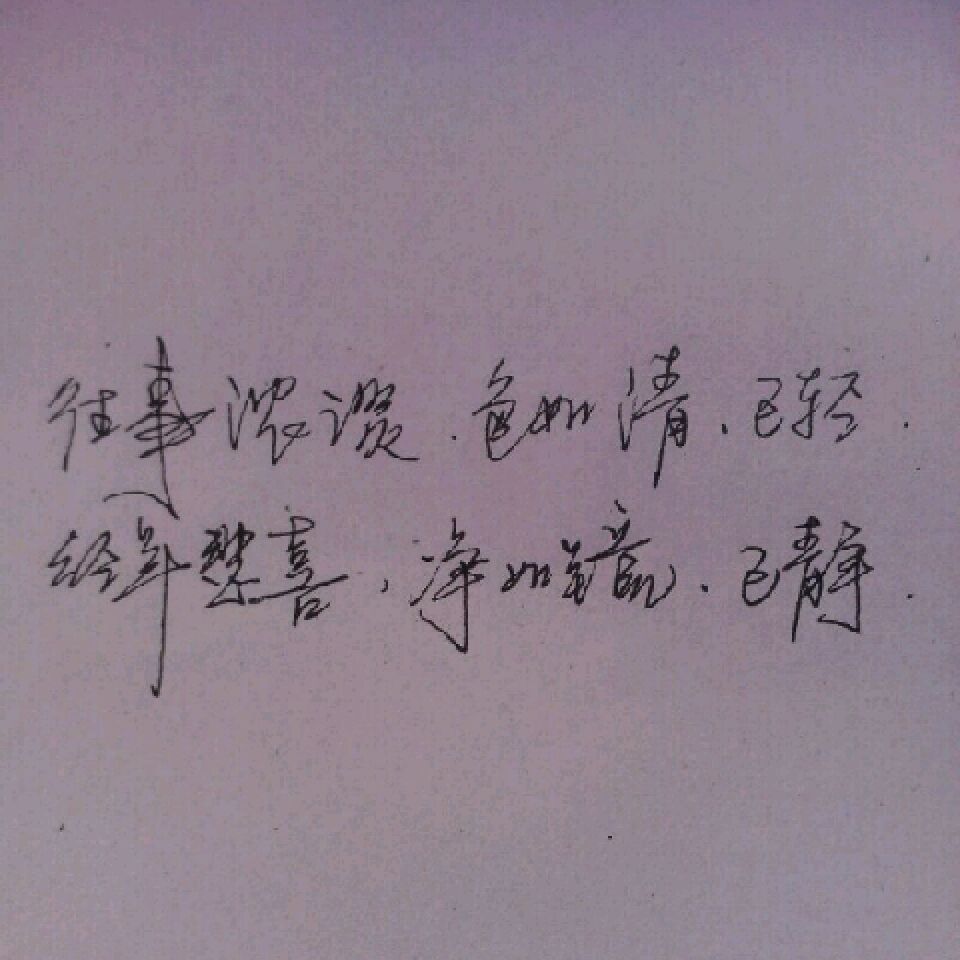 往事浓淡.色如清、已轻.
经年悲喜,净如镜、已静.